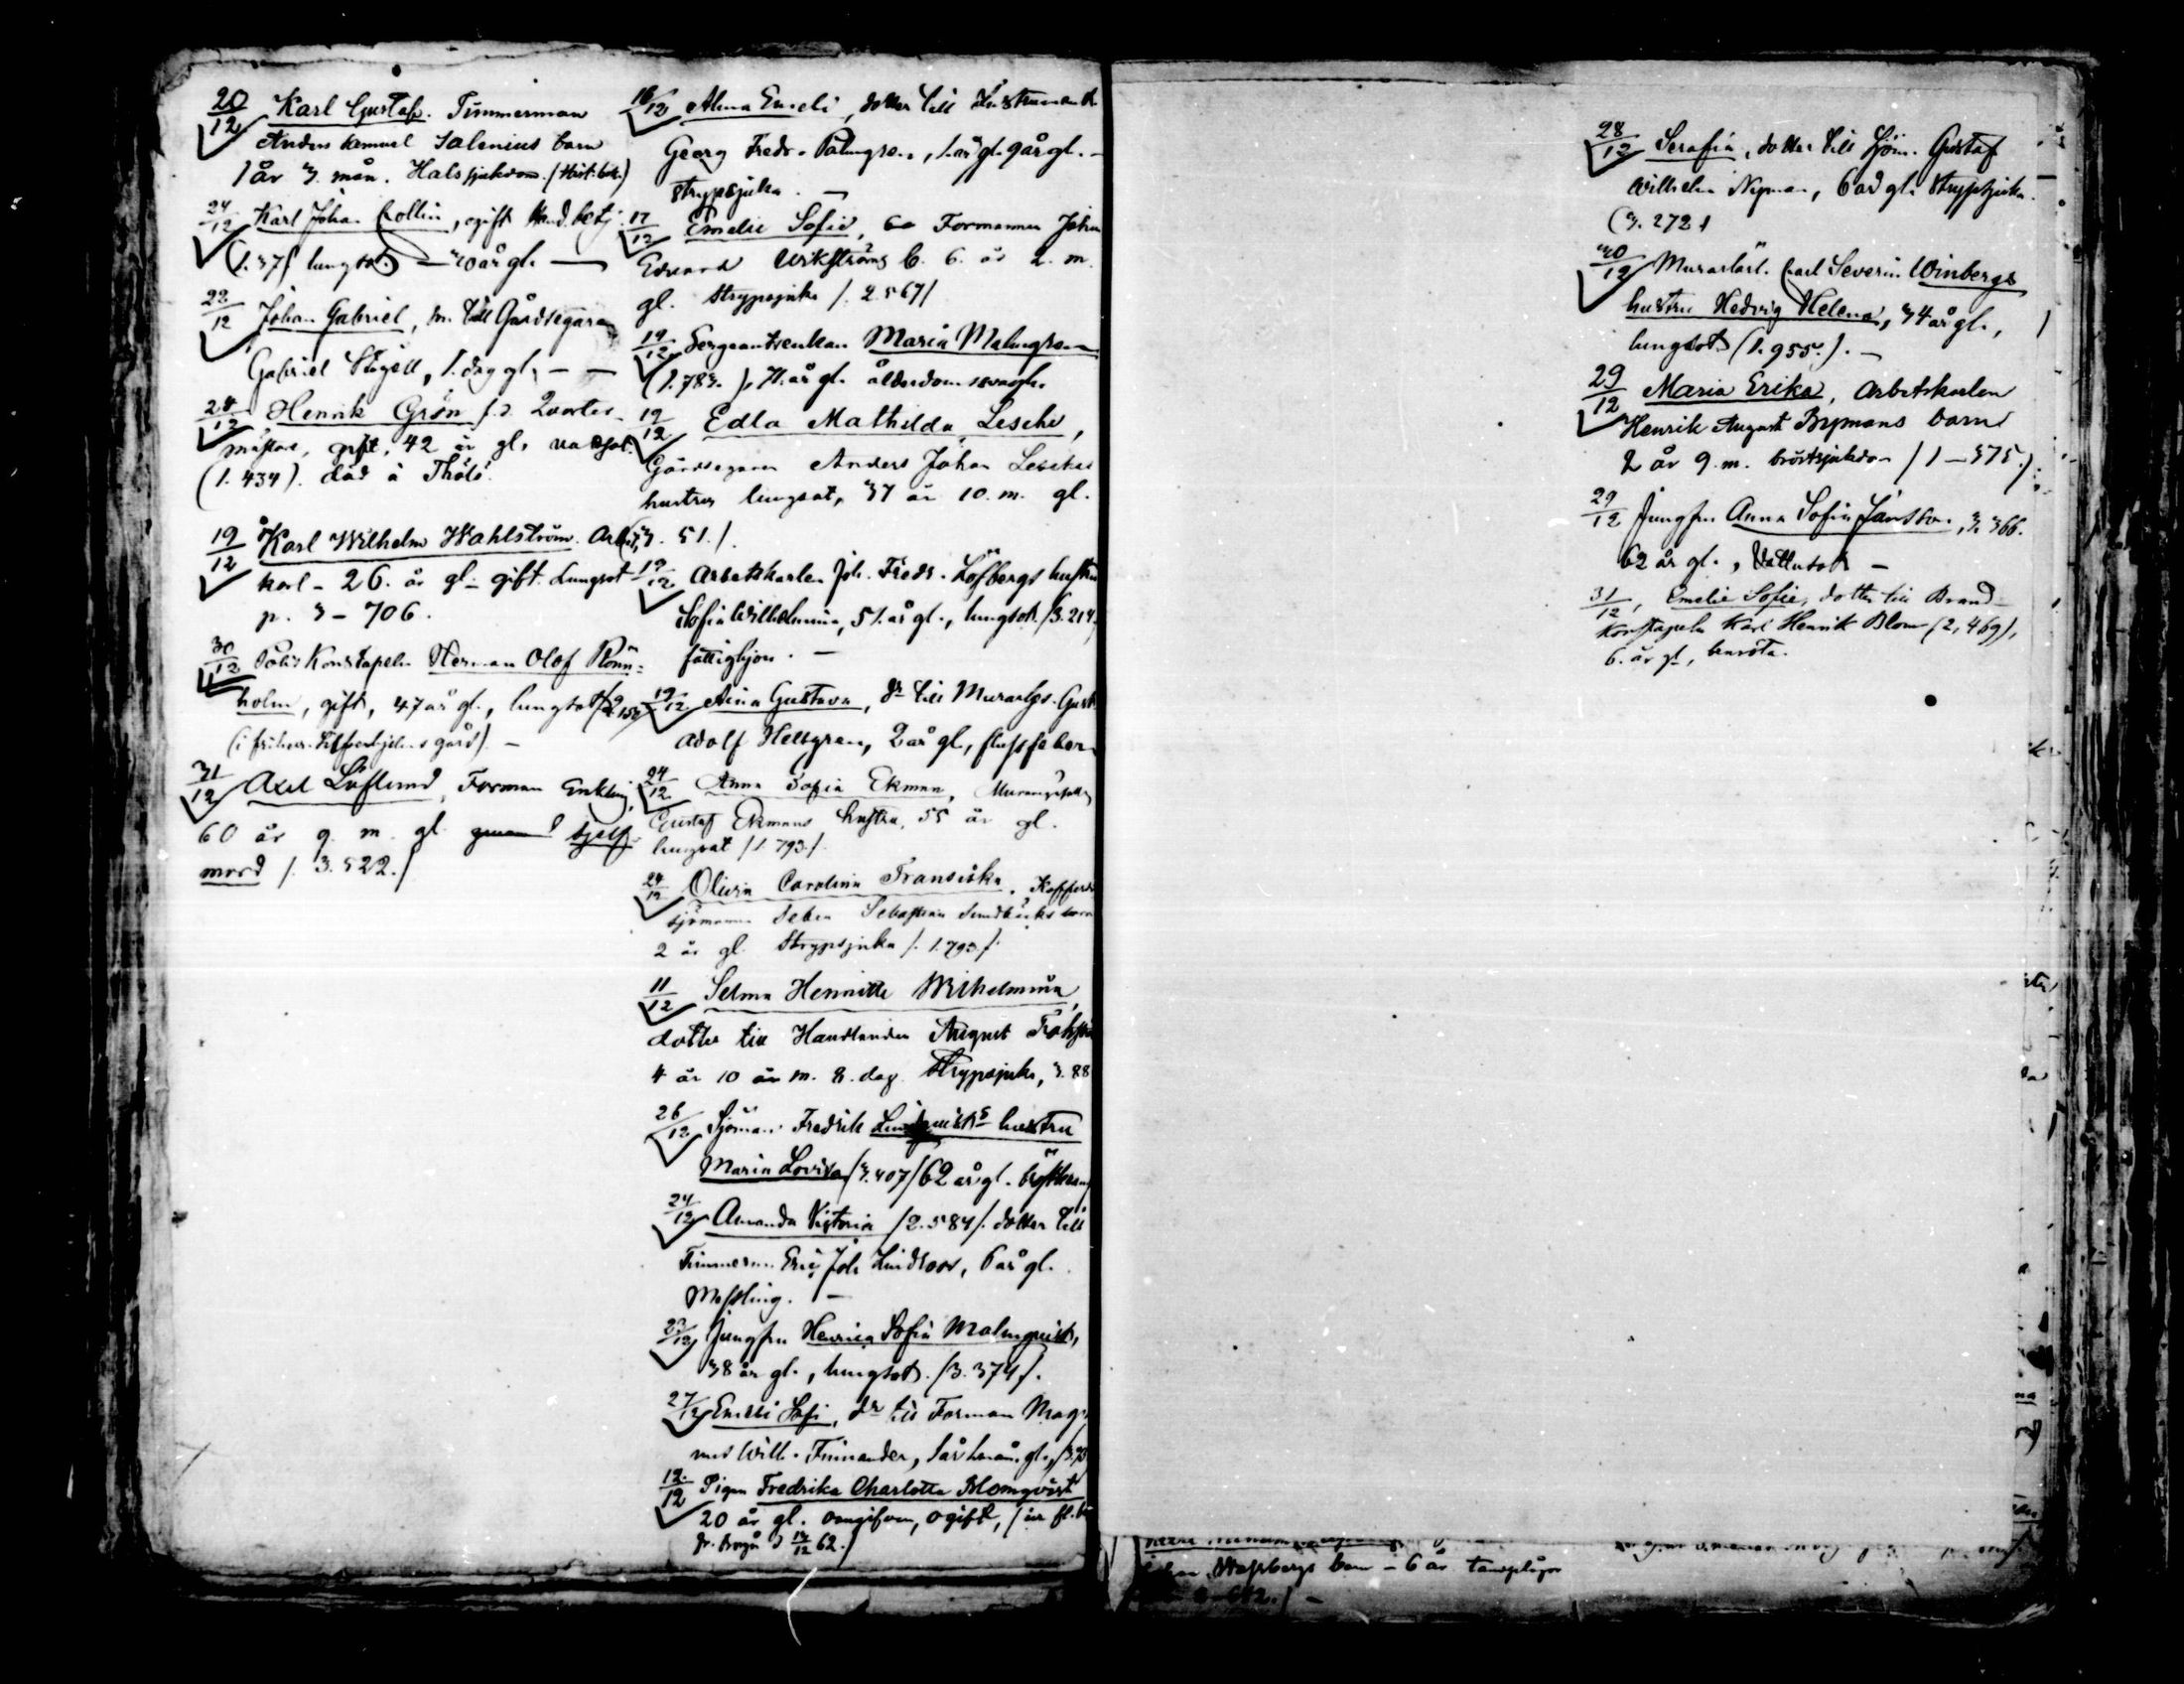 20/12 Karl Gustaf. Timmerman
Anders Samuel Salenius barn
1 år 3. mån. Halssjukdom.
24/12 Karl Johan Collin, ogift
(1.37 lungsot) — 20 år gl. —
22/12 Johan Gabriel, till Gårdsegaren
Gabriel 1. dag gl. — —
24/12 Henrik Grön f.d. Qvarter-
mästare, gift, 42 år gl.
(1. 434). död å Thölö.
19/12 Karl Wilhelm Wahlström. Arbets
karl - 26. år gl. gift. Lungsot
p. 3 - 706.
30/12 Polis Konstapeln Herman Olof Rönn-
holm, gift, 47 år gl., lungsot
gård). —
31/12 Axel Löflund, Forman Enkling,
60 år 9. m. gl. sjelf-
mord /. 3. 522./
16/12 Alma Emeli, dotter till
Georg Fredr. Palmgren,
strypsjuka. —
17/12 Emelie Sofie, Formannen Johan
Edvard b. 6. år 2. m.
gl. Strypsjuka /. 2 567/
19/12 Sergeantsenkan Maria Malmgren
(1.783.), 71. år gl. ålderdomssvaghet
19/12 Edla Mathilda Lesche,
Gårdsegaren Anders Johan Lesches
hustru lungsot, 37 år 10. m. gl.
3. 51./.
19/12 Arbetskarlen Joh. Fredr. Löfbergs hustru
Sofia Wilhelmina, 51. år gl., lungsot. /3. 214,
fattighjon. —
19/12 Aina Gustava, dr till Murarlgs. Gust.
Adolf Hellgren, 2 år gl.,
24/12 Anna Sofia Ekman,
Gustaf Ekmans hustru, 55 år gl.
lungsot /1. 793./.
24/12 Olivia Carolina Fransiska,
Sebastian
2 år gl. Strypsjuka /. 1. 793./.
11/12 Selma Henriette Wilhelmina,
dotter till Handlanden August
4 år 10 m. 8. dag. Strypsjuka, 3. 88
26/12 Sjöman Fredrik Lindqvists hustru
Maria Lovisa /3.407/ 62 år gl.
24/12 Amanda Victoria /2.584/. dotter till
Timmerm. Eric Joh. Lindroos, 6 år gl.
Messling. —
23/12 Jungfru Henrica Sofia Malmqvist,
38 år gl., lungsot. /3. 374/.
27/12 Emili Sofi, dr till Forman Mag-
nus Wilh. Finnander,
12/12 Pigan Fredrika Charlotta Blomqvist
20 år gl. oangifven, ogift,
fr. Borgå d 62./
28/12 Serafia, dotter till Sjöm. Gustaf
Wilhelm Nyman, 6 år gl. Strypsjuka.
(3. 272)
30/12 Murarlärl. Carl Severin Winbergs
hustru Hedvig Helena, 34 år gl.,
lungsot (1. 955.). —
29/12 Maria Erika, Arbetskarlen
Henrik August Rymans barn
2 år 9. m. bröstsjukdom / 1 - 575.)
29/12 Jungfru Anna Sofia Jansson, 3. 366.
62 år gl., Vattusot —
31/12, Emelie Sofie, dotter till Brand-
Konstapeln Karl Henrik Blom (2, 469),
6. år gl., benröta.
barn - 6 år